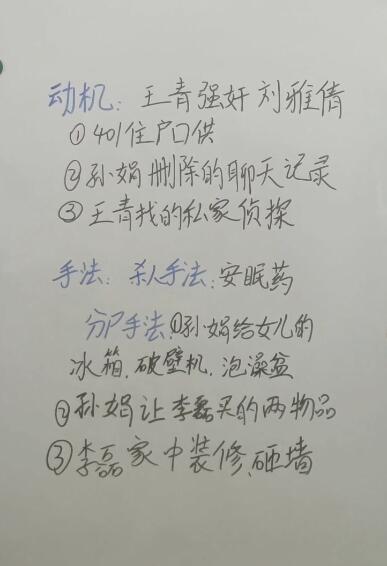 动机：王青强奸刘雅倩
①401住户口供
②孙娟删除的聊天记录
③王青找的私家侦探
手法：杀人手法：安眠药
分尸手法：①孙娟给女儿的
冰箱.破壁机.泡澡盆
②孙娟让李磊买的两物品
③李磊家中装修、砸墙